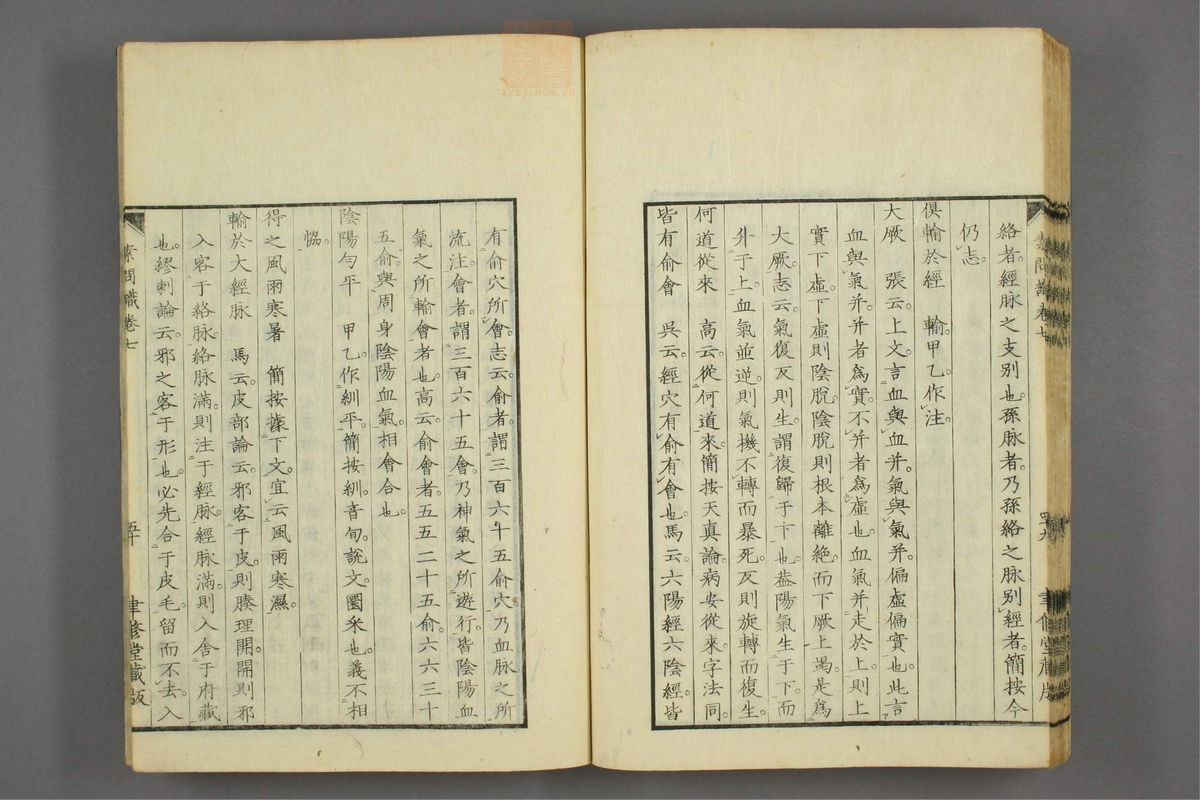 絡者。經脉之支别也。孫脉者。乃孫絡之脉别經者。簡按今
仍志。
俱輸於經　輸。甲乙作注。
大厥　張云。上文。言血與血并。氣與氣并。偏虚偏實也。此言
血與氣并。并者爲實。不并者爲虚也。血氣并走於上。則上
實下虚。下虚則陰脫。陰脫則根本離絶。而下厥上竭。是爲
大厥。志云。氣復反則生。謂復歸于下也。葢陽氣生于下。而
升于上。血氣並逆。則氣機不轉而暴死。反則旋轉而復生。
何道從來　高云。從何道來。簡按天真論。病安從來。字法同。
皆有俞會　吳云。經穴有俞有會也。馬云。六陽經六陰經。皆
素問識卷七
四九
聿修堂藏版
有俞穴所會。志云。俞者。謂三百六十五俞穴。乃血脉之所
流注。會者。謂三百六十五會。乃神氣之所遊行。皆陰陽血
氣之所輸會者也。高云。俞會者。五五二十五俞。六六三十
五俞。與周身陰陽血氣。相會合也。
陰陽勻平　甲乙。作紃平。簡按紃。音旬。說文。圜采也。義不相
恊。
得之風雨寒暑　簡按據下文。宜云風雨寒濕。
輸於大經脉　馬云。皮部論云。邪客于皮。則腠理開。開則邪
入客于絡脉。絡脉滿。則注于經脉。經脉滿。則入舍于府藏
也。繆刺論云。邪之客于形也。必先合于皮毛。留而不去。入
素問識卷七
五十
聿修堂藏版